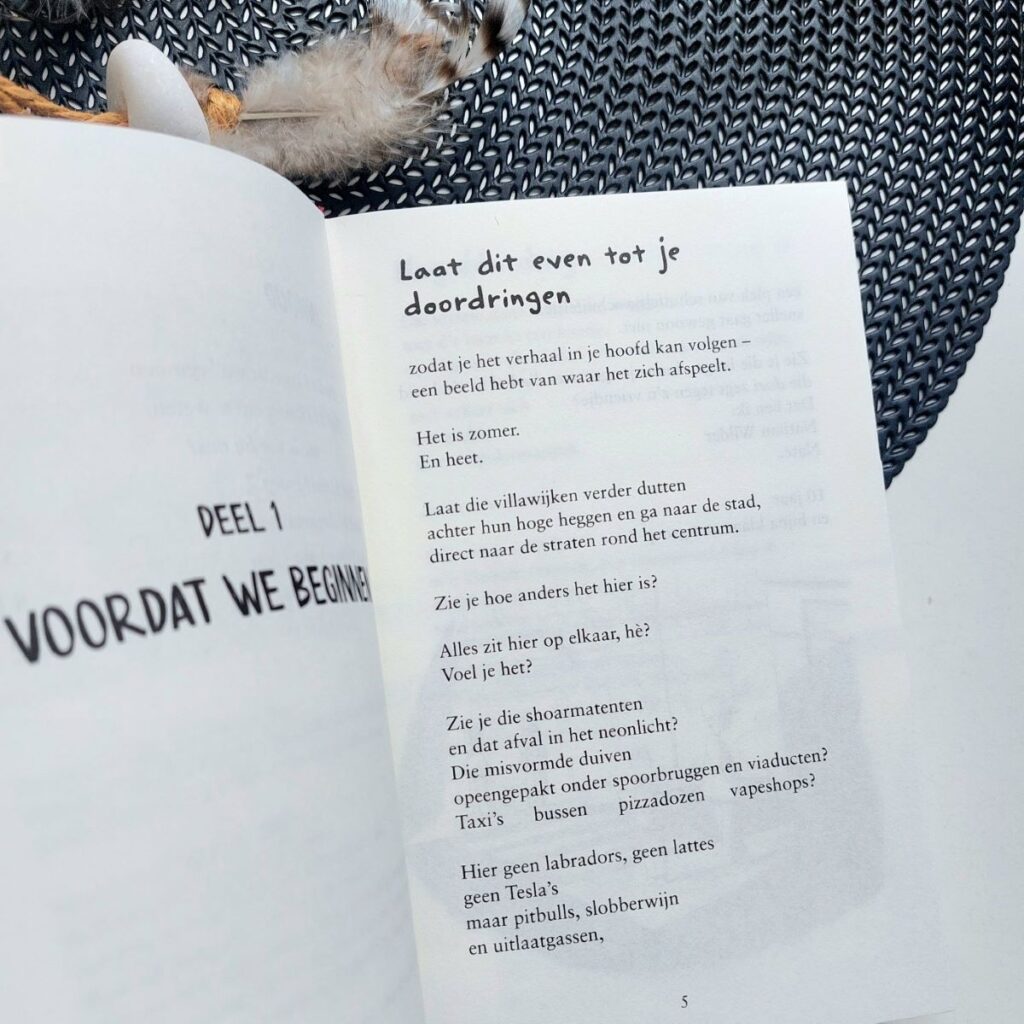 DEEL 1
VOORDAT WE BEGINNEN
Laat dit even tot je
doordringen
zodat je het verhaal in je hoofd kan volgen –
een beeld hebt van waar het zich afspeelt.
Het is zomer.
En heet.
Laat die villawijken verder dutten
achter hun hoge heggen en ga naar de stad,
direct naar de straten rond het centrum.
Zie je hoe anders het hier is?
Alles zit hier op elkaar, hè?
Voel je het?
Zie je die shoarmatenten
en dat afval in het neonlicht?
Die misvormde duiven
opeengepakt onder spoorbruggen en viaducten?
Taxi's bussen pizzadozen vapeshops?
Hier geen labradors, geen lattes
geen Tesla's
maar pitbulls, slobberwijn
en uitlaatgassen,
5